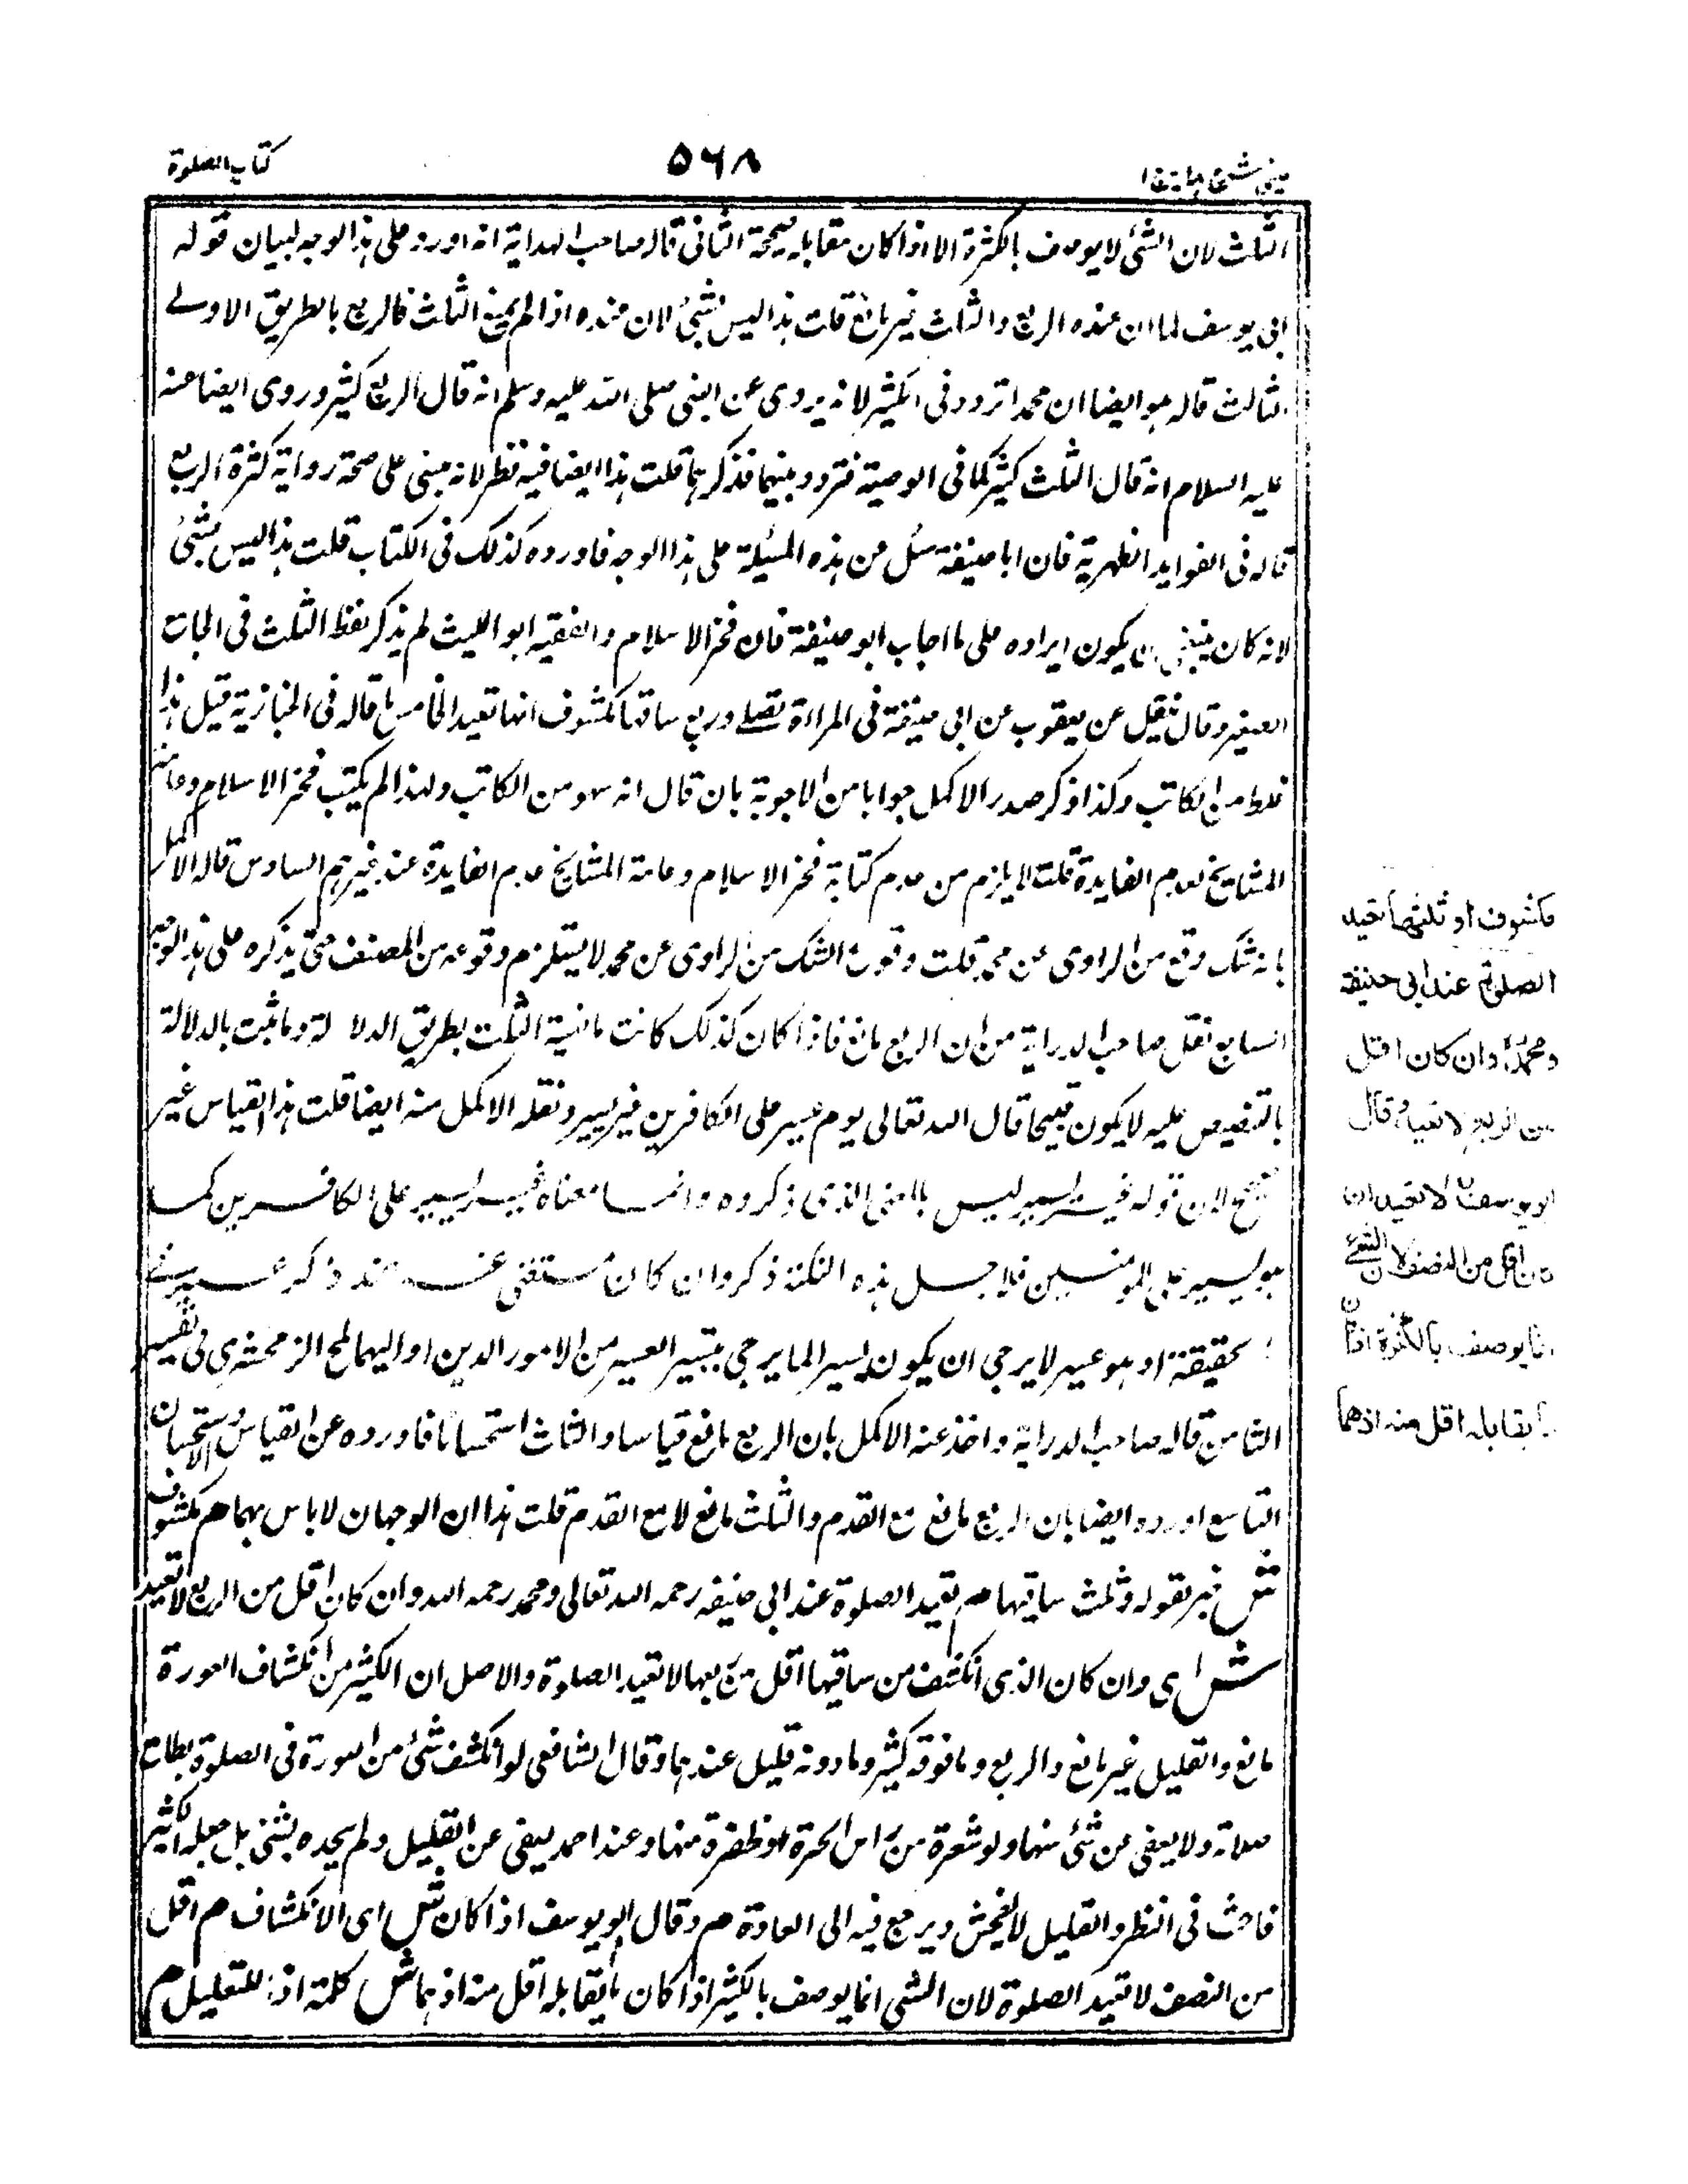 عینی شرح ہدایۃ ج ۱
۵۶۸
کتاب الصلوة
الثلث لان الشئ لا یوصف بالکثرة الا اذا کان مقابله الثانی قاله صاحب الهدایة انه اورد علی هذا الوجه لبیان قوله
ابی یوسف لما ان عنده الربع والثلث غیر مانع قلت هذا لیس بشئ لان عنده اذا لم یمنع الثلث فالربع بالطریق الاولے
الثالث قاله هو ایضا ان محمدا تردد فی الکثیر لانه یروی عن النبی صلی الله علیه وسلم انه قال الربع کثیر وروی ایضا عنه
علیه السلام انه قال الثلث کثیر کما فی الوصیة فتردد بینهما فذکرهما قلت هذا ایضا فیه نظر لانه مبنی علی صحة روایة کثرة الربع
قاله فی الفواید الظهیریة فان ابا حنیفة سئل عن هذه المسئلة علی هذا الوجه فاورده کذلک فی الکتاب قلت هذا لیس بشئ
لانه کان ینبغی ان یکون ایراده علی ما اجاب ابو حنیفة فان فخر الاسلام والفقیه ابو اللیث لم یذکر لفظ الثلث فی الجامع
الصغیر وقال نقیل عن یعقوب عن ابی حنیفة فی المراة تصلے وربع ساقها مکشوف انها تعید الخامس ما قاله فی الخبازیة قیل هذا
غلط من الکاتب وکذا ذکر صدر الاکمل جوابا من الاجوبة بان قال انه سهو من الکاتب ولهذا لم یکتب فخر الاسلام وعامة
المشایخ لعدم الفایدة قلت لا یلزم من عدم کتابة فخر الاسلام وعامة المشایخ عدم الفایدة عند غیرهم السادس قاله الاکمل
بانه شک وقع من الراوی عن محمد قلت وقوع الشک من الراوی عن محمد لا یستلزم وقوعه من المصنف حتی یذکره علی هذا الوجه
السابع نقل صاحب الدرایة من ان الربع مانع فاذا کان کذلک کانت مانعیة الثلث بطریق الدلالة وما ثبت بالدلالة
بالتنصیص علیه لا یکون قبیحا قال الله تعالی یوم عسیر علی الکافرین غیر یسیر ونقله الاکمل منه ایضا قلت هذا القیاس غیر
صحیح لان قوله غیر یسیر لیس بالمعنی الذی ذکروه وانما معناه غیر یسیر علی الکافرین کما
هو یسیر علی المومنین فلاجل هذه النکتة ذکر وان کان مستغنی عنه عند ذکر عسیر
حقیقة او هو عسیر لا یرجی ان یکون یسیرا لما یرجی تیسیر العسیر من الامور الدین او الیها لمح الزمحشری فی تفسیر
الثامن قاله صاحب الدرایة واخذ عنه الاکمل بان الربع مانع قیاسا والثلث استحسانا فاورده عن القیاس والاستحسان
التاسع اورده ایضا بان الربع مانع مع القدم والثلث مانع لا مع القدم قلت هذا ان الوجهان لا باس بهما هم مکشوف
ش خبر لقوله وثلث ساقیها م تعید الصلوة عند ابی حنیفه رحمه الله تعالی ومحمد رحمه الله وان کان اقل من الربع لا تعید
ش ای وان کان الذی انکشف من ساقیها اقل من ربعها لا تعید الصلوة والاصل ان الکثیر من انکشاف العورة
مانع والقلیل غیر مانع والربع وما فوقه کثیر وما دونه قلیل عندهما وقال الشافعی لو انکشف شئ من العورة فی الصلوة بطلت
صلاته ولا یعفی عن شئ منها ولو شعرة من راس الحرة او ظفرة منها وعند احمد یعفی عن القلیل ولم یحده بشئ بل جعله الکثیر
فاحش فی النظر والقلیل لا یفحش ویرجع فیه الی العادة م وقال ابو یوسف اذا کان ش ای الانکشاف م اقل
من النصف لا تعید الصلوة لان الشئ انما یوصف بالکثیر اذا کان ما یقابله اقل منه اذ هما ش کلمة اذ للتعلیل م
مکشوف او ثلثها تعید
الصلوة عند ابی حنیفة
ومحمدؒ وان کان اقل
من الربع لا تعید وقال
ابو یوسفؒ لا تعید ان
کان اقل من النصف لان الشئ
انما یوصف بالکثرة اذا کان
ما یقابله اقل منه اذ هما